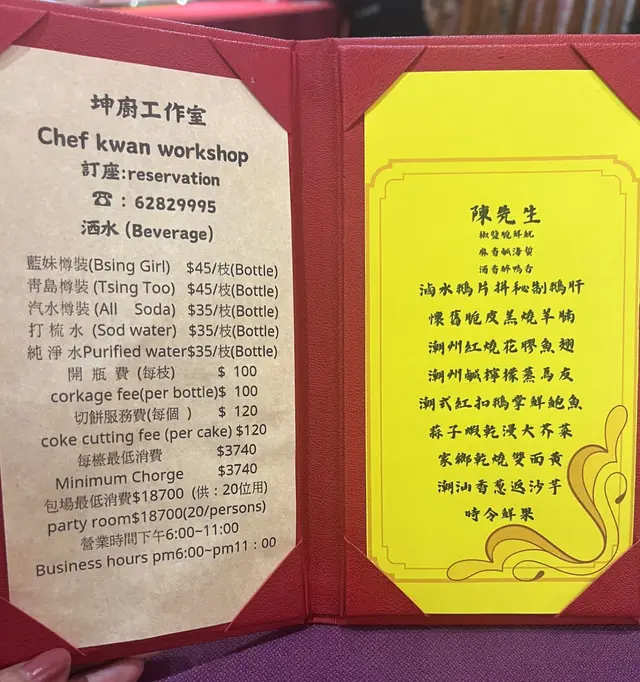 坤廚工作室
Chef kwan workshop
訂座:reservation
☎ : 62829995
洒水 (Beverage)
藍妹樽裝(Bsing Girl) $45/枝(Bottle)
青島樽裝 (Tsing Too) $45/枝(Bottle)
汽水樽裝 (All Soda) $35/枝(Bottle)
打梳水 (Sod water) $35/枝(Bottle)
純淨水Purified water$35/枝(Bottle)
開瓶費 (每枝) $ 100
corkage fee(per bottle)$ 100
切餅服務費(每個 ) $ 120
coke cutting fee (per cake) $120
每檯最低消費 $3740
Minimum Chorge $3740
包場最低消費$18700 (供:20位用)
party room$18700(20/persons)
營業時間下午6:00~11:00
Business hours pm6:00~pm11：00
陳先生
椒鹽脆鮮魷
麻香鹹海蜇
酒香醉鳴吞
滷水鵝片拼秘制鵝肝
懷舊脆皮羔燒羊腩
潮州紅燒花膠魚翅
潮州鹹檸檬蒸馬友
潮式紅扣鵝掌鮮鮑魚
蒜子蝦乾浸大芥菜
家鄉乾燒雙面黃
潮汕香蔥返沙芋
時令鮮果